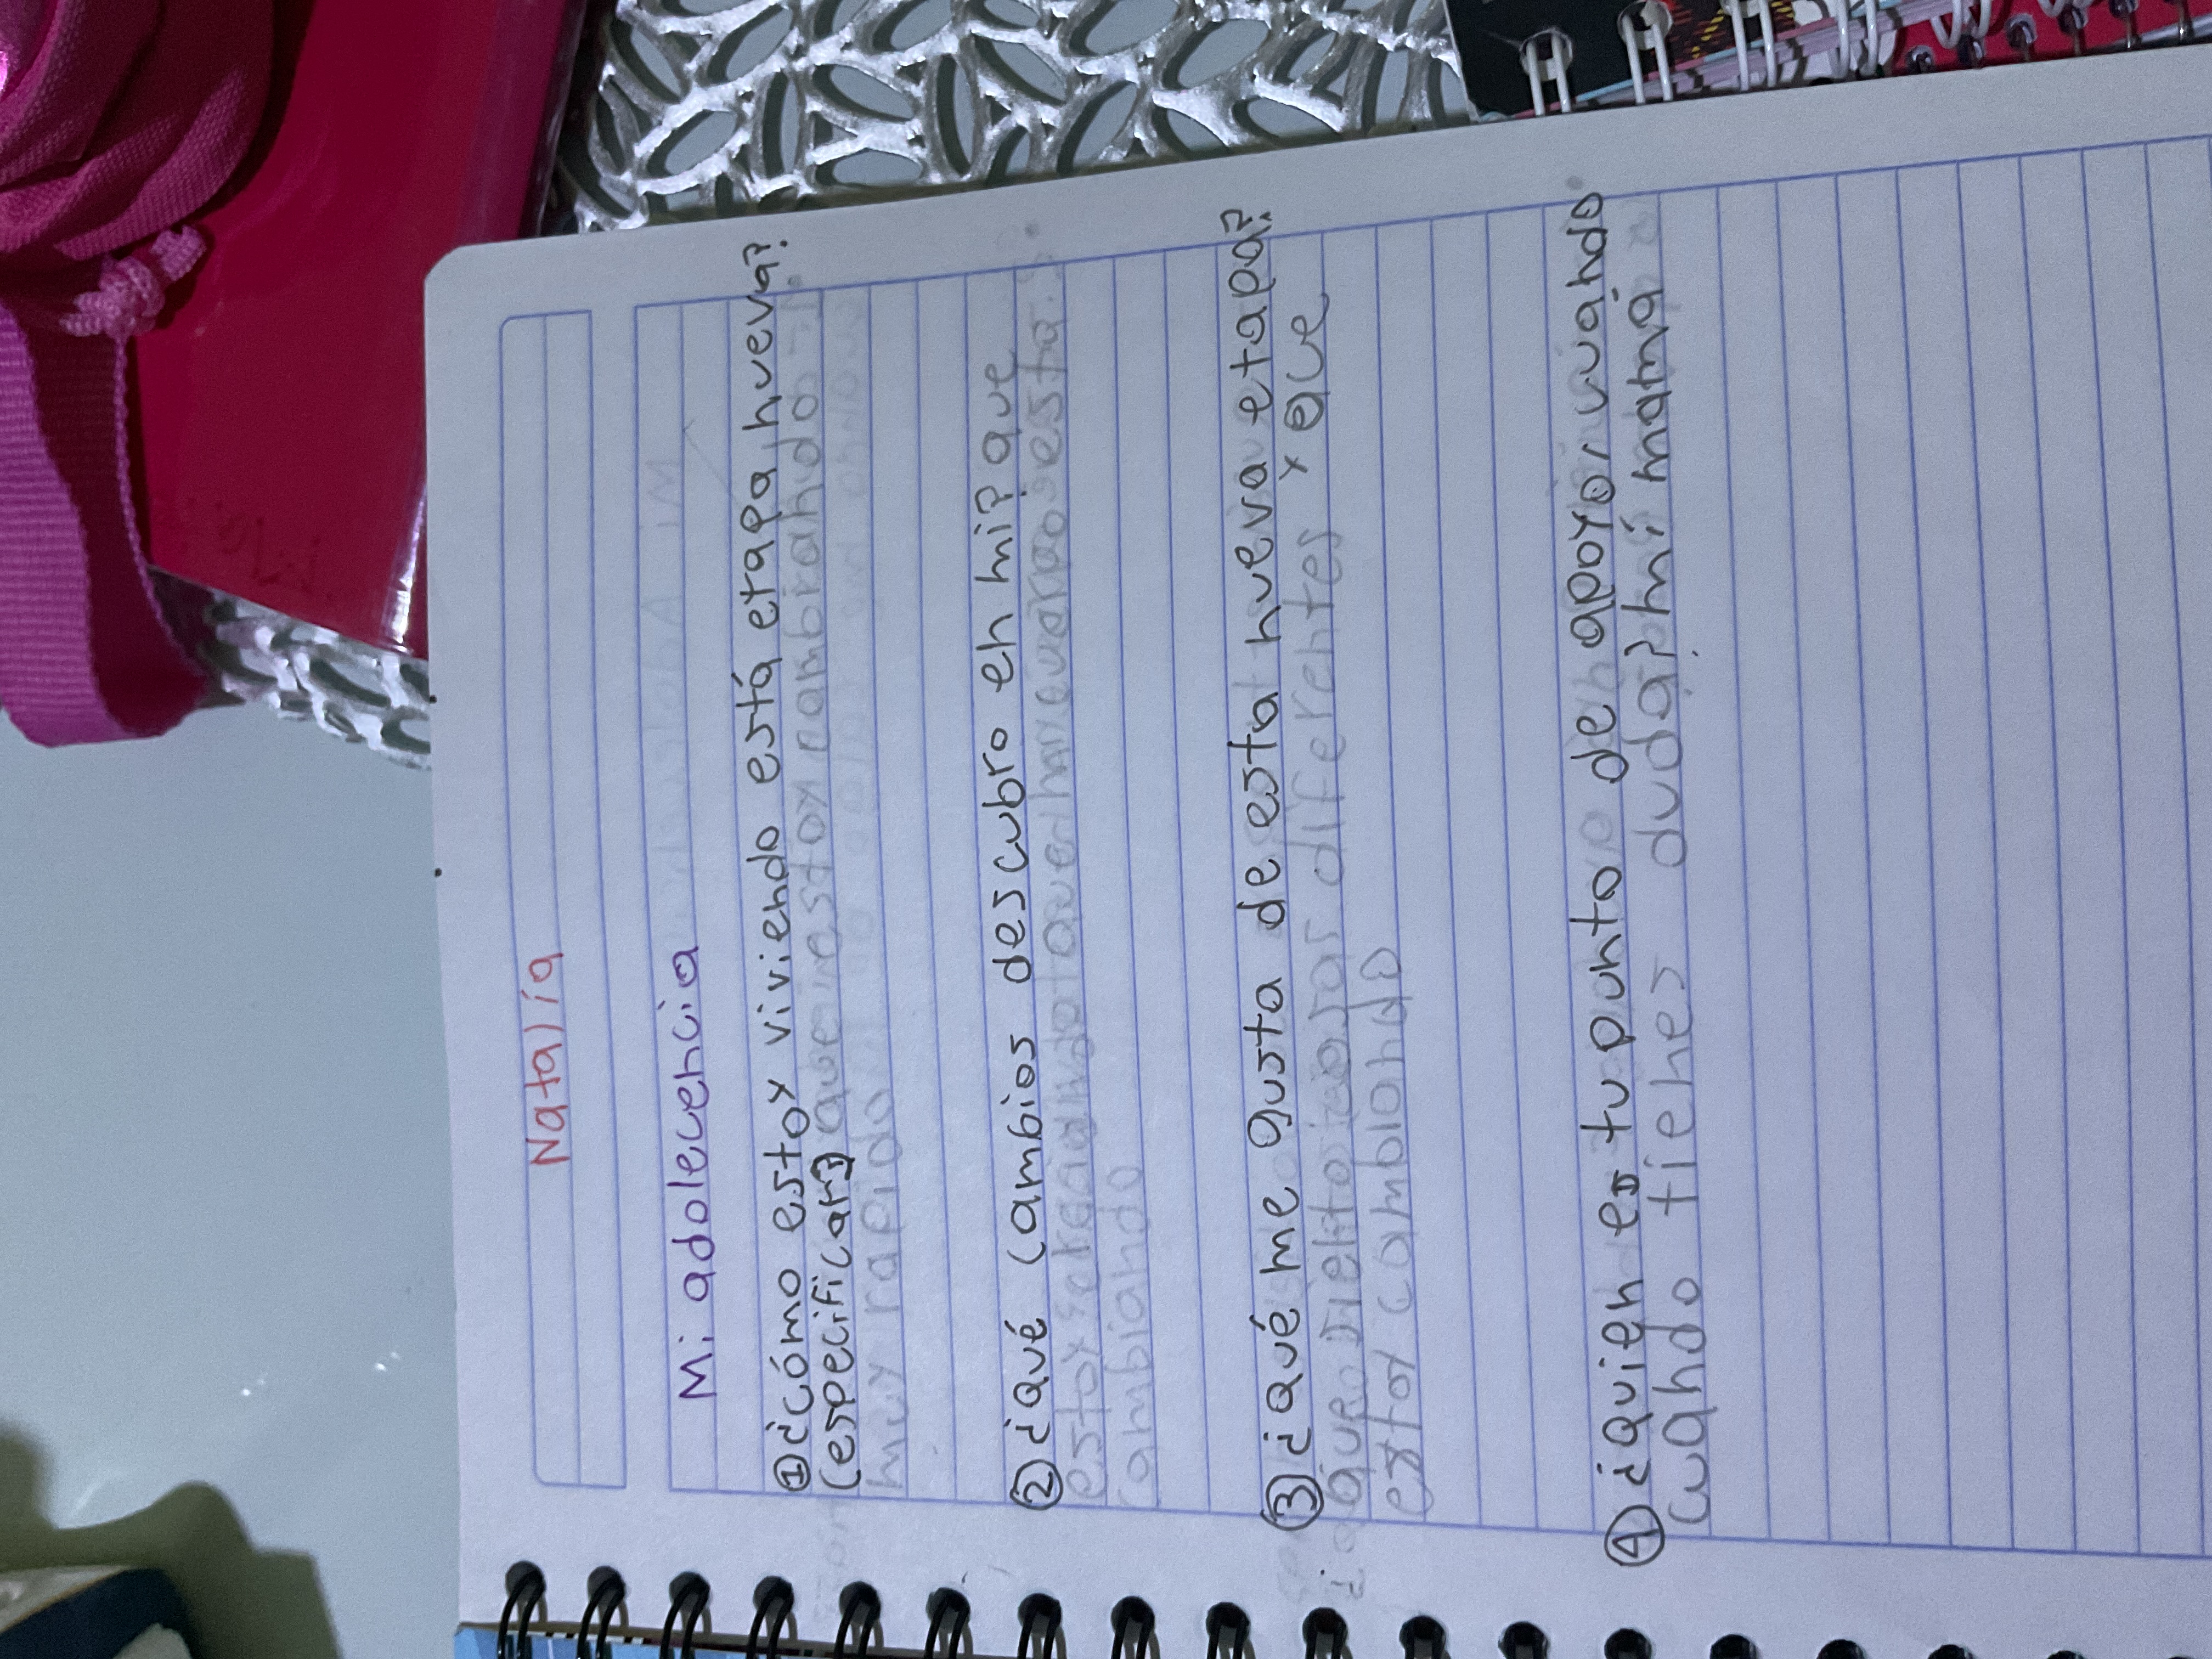 Natalía
Mi adolecencia
① ¿cómo estoy viviendo está etapa nueva?
(especificar) que estoy cambiando
muy rapido
② ¿qué cambios descubro en mi? que
estoy
cambiando
③ ¿qué me gusta de esta nueva etapa?
que siento cosas diferentes y que
estoy cambiando
④ ¿quien es tu punto de apoyo, cuando
cuando tienes duda? mi mamá